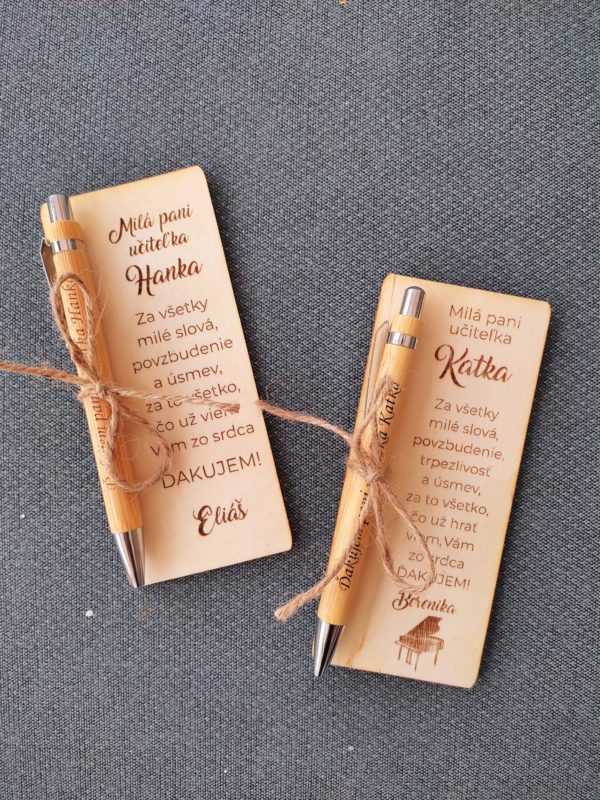 Milá pani
učiteľka
Hanka
Za všetky
milé slová,
povzbudenie
a úsmev,
za to všetko,
čo už viem,
Vám zo srdca
ĎAKUJEM!
Eliáš
Hanka
Milá pani
učiteľka
Katka
Za všetky
milé slová,
povzbudenie,
trpezlivosť
a úsmev,
za to všetko,
čo už hrať
viem, Vám
zo srdca
ĎAKUJEM!
Berenika
Ďakujem pani Katka